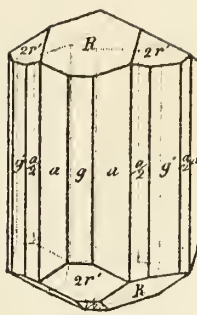 2r' R 2r'
g' a/2 a g a a/2 g' a/2
2r' R